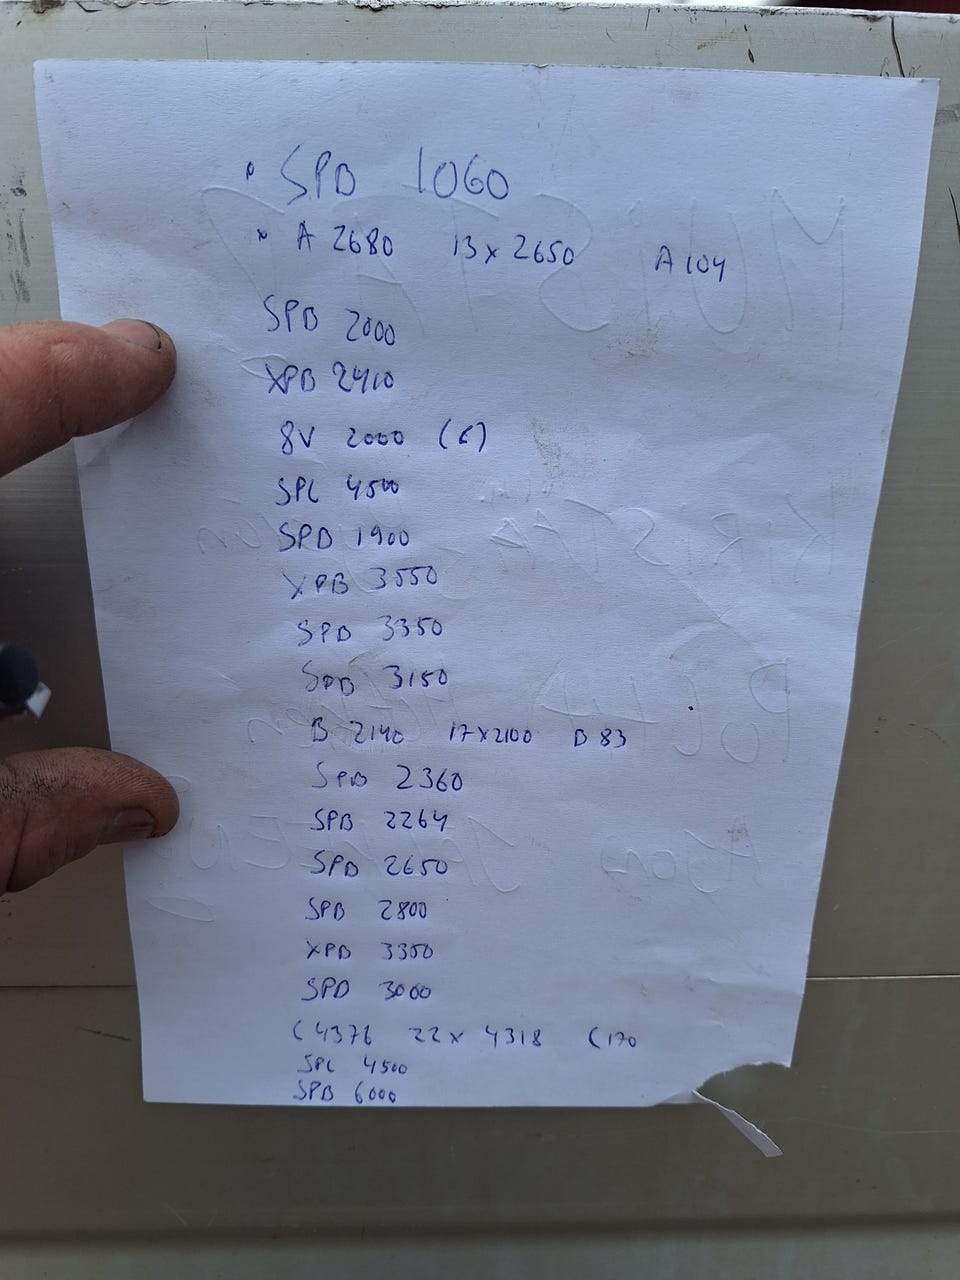 • SPB 1060
× A 2680 13 x 2650 A 104
SPB 2000
XPB 2410
8V 2000 (6)
SPC 4500
SPB 1900
XPB 3550
SPB 3350
SPB 3150
B 2140 17x2100 B 83
SPB 2360
SPB 2264
SPB 2650
SPB 2800
XPB 3350
SPB 3000
C 4376 22 x 4318 C 170
SPC 4500
SPB 6000